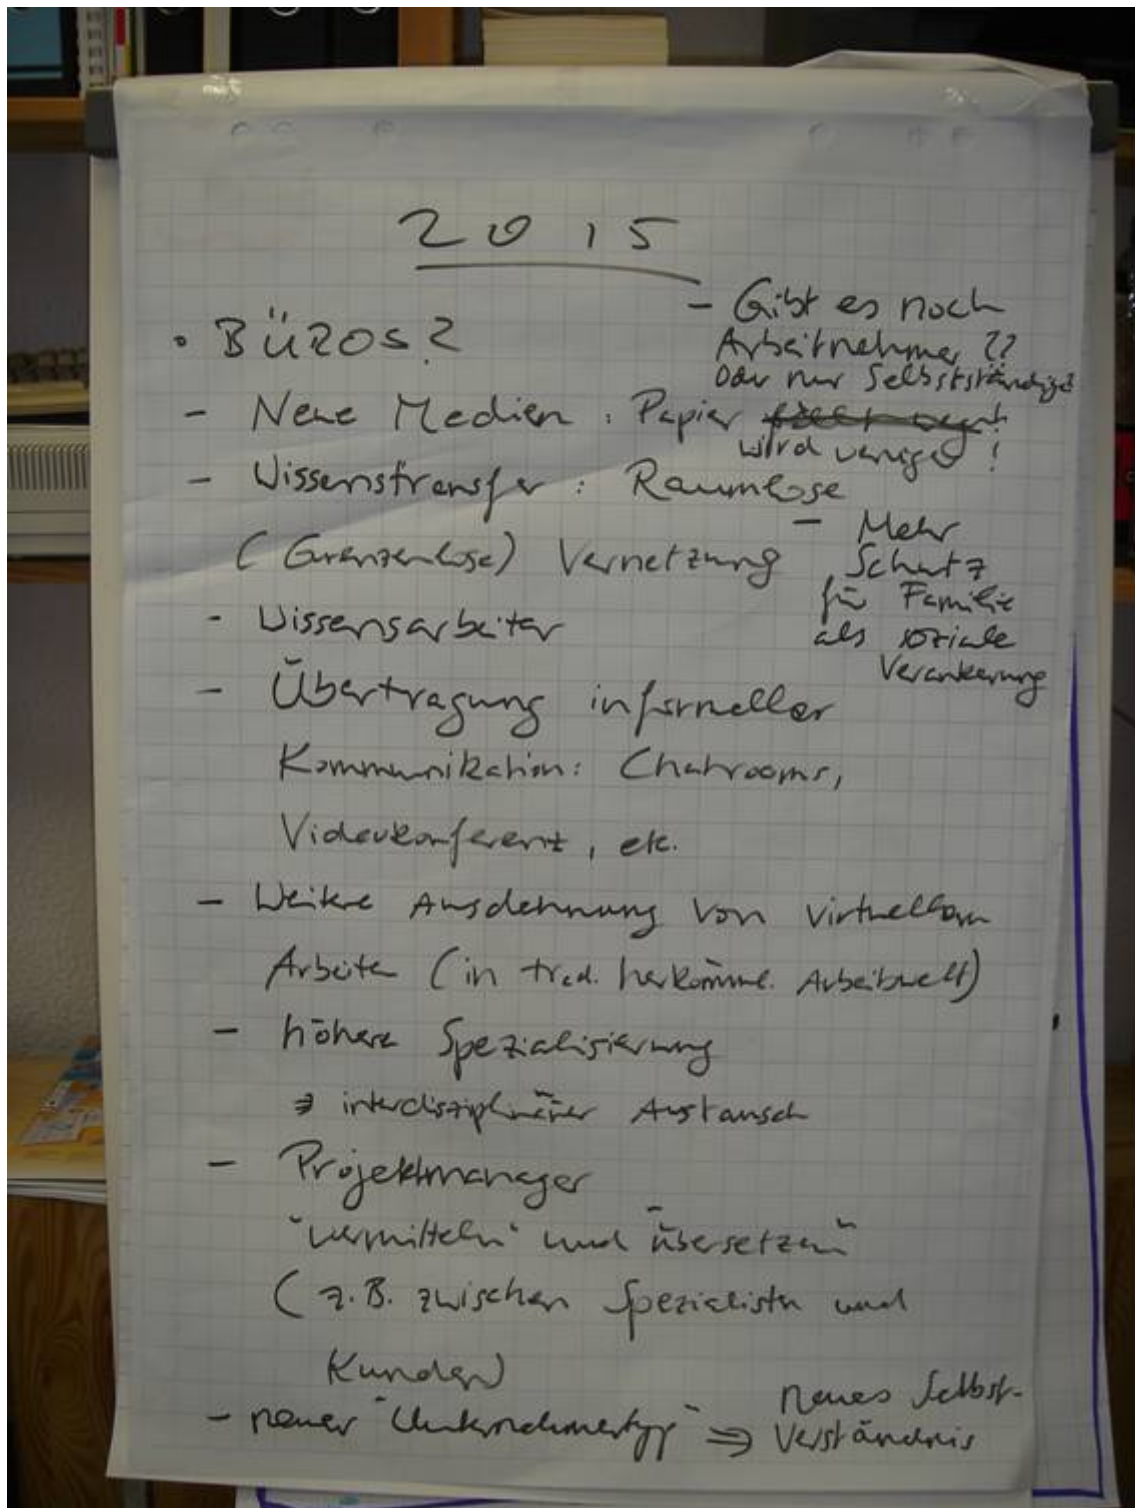 2015
• BÜROS?
- Gibt es noch
Arbeitnehmer ??
Oder nur Selbstständige?
- Neue Medien : Papier fällt weg!
wird weniger !
- Wissenstransfer : Raumlose
(Grenzenlose) Vernetzung
- Mehr
Schutz
für Familie
als soziale
Verankerung
- Wissensarbeiter
- Übertragung informeller
Kommunikation: Chatrooms,
Videokonferenz, etc.
- Weitere Ausdehnung von virtuellem
Arbeiten (in trad. herkömml. Arbeitswelt)
- höhere Spezialisierung
⇒ interdisziplinärer Austausch
- Projektmanager
"vermitteln" und "übersetzen"
(z.B. zwischen Spezialisten und
Kunden)
- neuer "Unternehmertyp" ⇒ neues Selbst-
verständnis